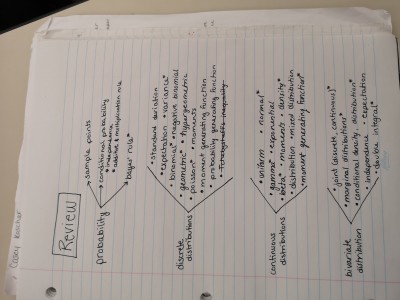 Review
probability
sample points
conditional probability
• independence
• additive & multiplication rule
bayes' rule*
discrete
distributions
• standard deviation
• expectation • variance*
• binomial* • negative binomial
• geometric* • hypergeometric
• poisson* • moments
• moment generating function
• probability generating function
• Tchebysheff's inequality
continuous
distributions
• uniform • normal*
• gamma* • exponential
• beta* • moments • density*
• distribution • mixed distribution
• moment generating function*
bivariate
distribution
• joint (discrete, continuous)*
• marginal distributions*
• conditional density, distribution*
• independence • expectation
• double integral*